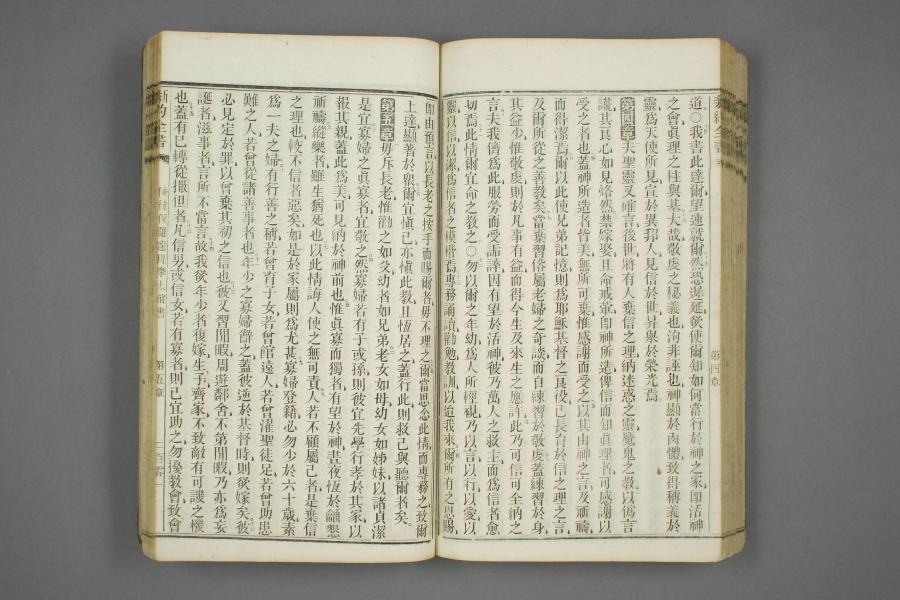 新約全書
道○我書此達爾望速就爾然恐遲延欲使爾知如何當行於神之家卽活神
之會眞理之柱與基大哉敬虔之秘義也洵非誣也神顯於肉體致得稱義於
靈爲天使所見宣於異邦人見信於世昇舉於榮光焉
第四章 夫聖靈又確言後世將有人棄信之理納迷惑之靈魔鬼之教以僞言
謊其良心如見烙然禁嫁娶且命戒葷卽神所造俾信而知眞理者可感謝以
受之者也蓋神所造者皆美無所可棄惟感謝而受之以其由神之言及祈禱
而得潔焉爾以此使兄弟記憶則爲耶穌基督之良役已長育於信之理之言
及爾所從之善教矣當棄習俗屬老婦之奇談而自練習於敬虔蓋練習於身
其益少惟敬虔則於凡事有益而得今生及來生之應許此乃可信可全納之
言夫我儕爲此服勞而受詬誶因有望於活神彼乃萬人之救主而爲信者愈
切焉此情爾宜命之教之○勿以爾之年幼爲人所輕視乃以言以行以愛以
靈以信以潔爲信者之模楷焉專務誦讀勸勉教訓以迨我來爾所有之恩賜
第四章
卽由預言以長老之按手而賜爾者毋不理之爾當思念此情而專務之致爾
上達顯著於衆爾宜愼己亦愼此教且恆居之蓋行此則救己與聽爾者矣
第五章 毋斥長老惟勸之如父幼者如兄弟老女如母幼女如姊妹以諸貞潔
是宜寡婦之眞寡者宜敬之然寡婦若有子或孫則彼宜先學行孝於其家以
報其親蓋此爲美可見納於神前也惟眞寡而獨者有望於神晝夜恆於龥懇
祈禱縱樂者雖生猶死也以此情誨人使之無可責人若不顧屬己者是棄信
之理也較不信者惡矣如是於家屬則爲尤甚寡婦登籍必勿少於六十歲素
爲一夫之婦有行善之稱若曾育子女若曾館遠人若曾濯聖徒足若曾助患
難之人若曾從諸善事者也年少之寡婦辭之蓋彼逆於基督時則欲嫁矣彼
必見定於罪以曾棄其初之信也彼又習閒暇周遊鄰舍不第閒暇乃亦爲妄
誕者滋事者言所不當言故我欲年少者復嫁生子齊家不致敵有可譏之機
也蓋有已轉從撒但者凡信男或信女若有寡者則己宜助之勿擾教會致會
新約全書
第五章